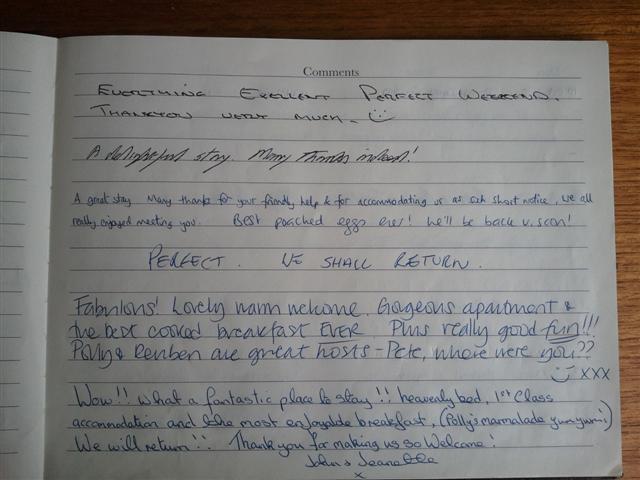 Comments
EVERYTHING EXELLENT PERFECT WEEKEND.
THANKYOU VERY MUCH. ☺
A delightful stay. Many Thanks indeed!
A great stay Many thanks for your friendly help & for accommodating us as such short notice, we all
really enjoyed meeting you. Best poached eggs ever! We'll be back v. soon!
PERFECT. WE SHALL RETURN.
Fabulous! Lovely warm welcome. Gorgeous apartment &
the best cooked breakfast EVER Plus really good fun!!!
Polly & Reuben are great hosts - Pete, where were you??
☺ xxx
Wow!! What a fantastic place to stay!! heavenly bed, 1st Class
accommodation and the most enjoyable breakfast, (Polly's marmalade yum yum!)
We will return!! Thank you for making us so Welcome!
John & Jeanette
x